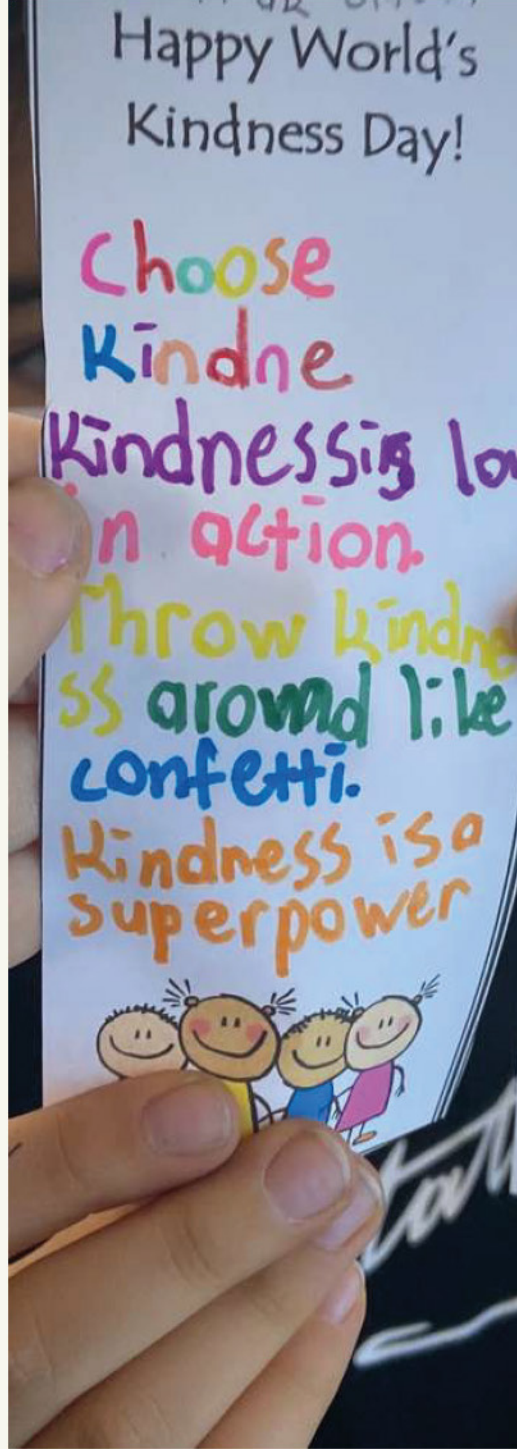 Happy World's
Kindness Day!
Choose
Kindne
Kindnessis lo
in action.
Throw kindne
ss around like
confetti.
Kindness is a
superpower